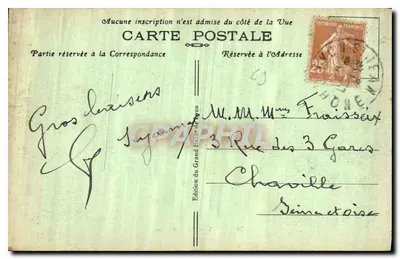 Aucune inscription n'est admise du côté de la Vue
CARTE POSTALE
Partie réservée à la Correspondance
Réservée à l'Adresse
25
RHONE
Gros baisers
Suzanne
Edition du Grand
M. M. Mme Fraisseix
3 Rue des 3 Gares
Chaville
Seine et oise
CPARAMA